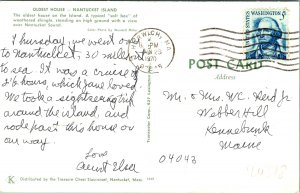 OLDEST HOUSE — NANTUCKET ISLAND
OLDEST HOUSE on the island. A typical "salt box" of
weathered shingle, standing on high ground with a view over
Nantucket Sound.
Thursday, we went over
to Nantucket, 30 miles out
to sea. It was a cruise of
2½ hours, which Jane loved.
We took a sightseeing trip
around the island, and
rode past this house on
our way.
Love
Aunt Elsa
PM
1970
WASHINGTON
5
POST CARD
Address
Mr. & Mrs. WC
Webber Hill
Kennebunk
Maine
04043
K
Distributed by The Treasure Chest
Nantucket, Mass.